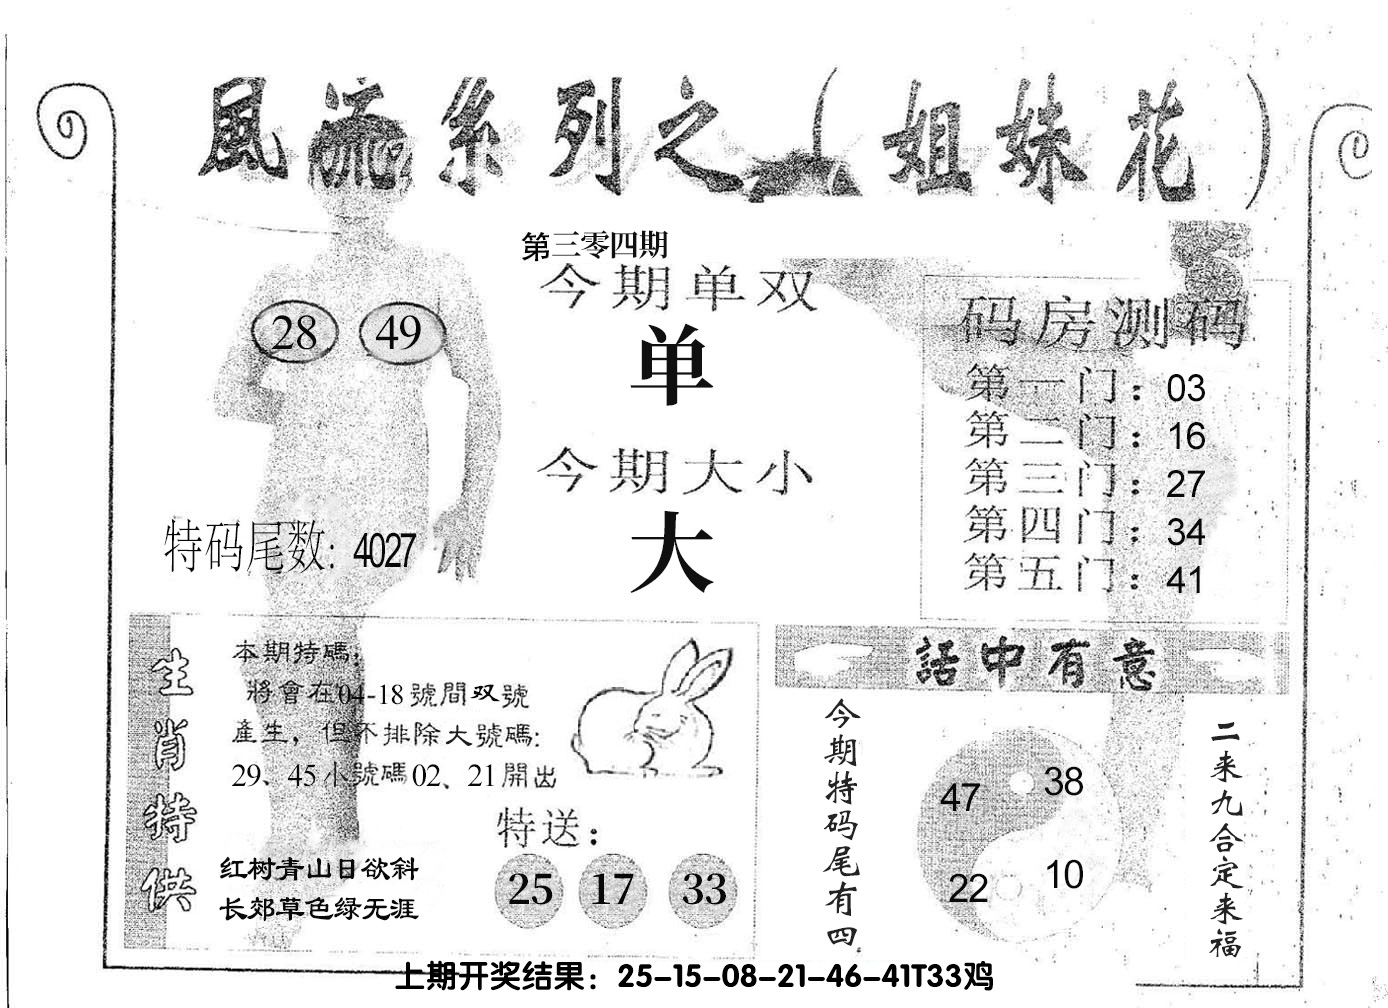 風流系列之（姐妹花）
第三零四期
今期单双
单
今期大小
大
28
49
特码尾数: 4027
码房测码
第一门：03
第二门：16
第三门：27
第四门：34
第五门：41
生肖特供
本期特碼：
將會在04-18號間双號
產生，但不排除大號碼:
29、45小號碼02、21開出
特送：
25 17 33
红树青山日欲斜
长郊草色绿无涯
話中有意
今期特码尾有四
47
38
22
10
二来九合定来福
上期开奖结果：25-15-08-21-46-41T33鸡